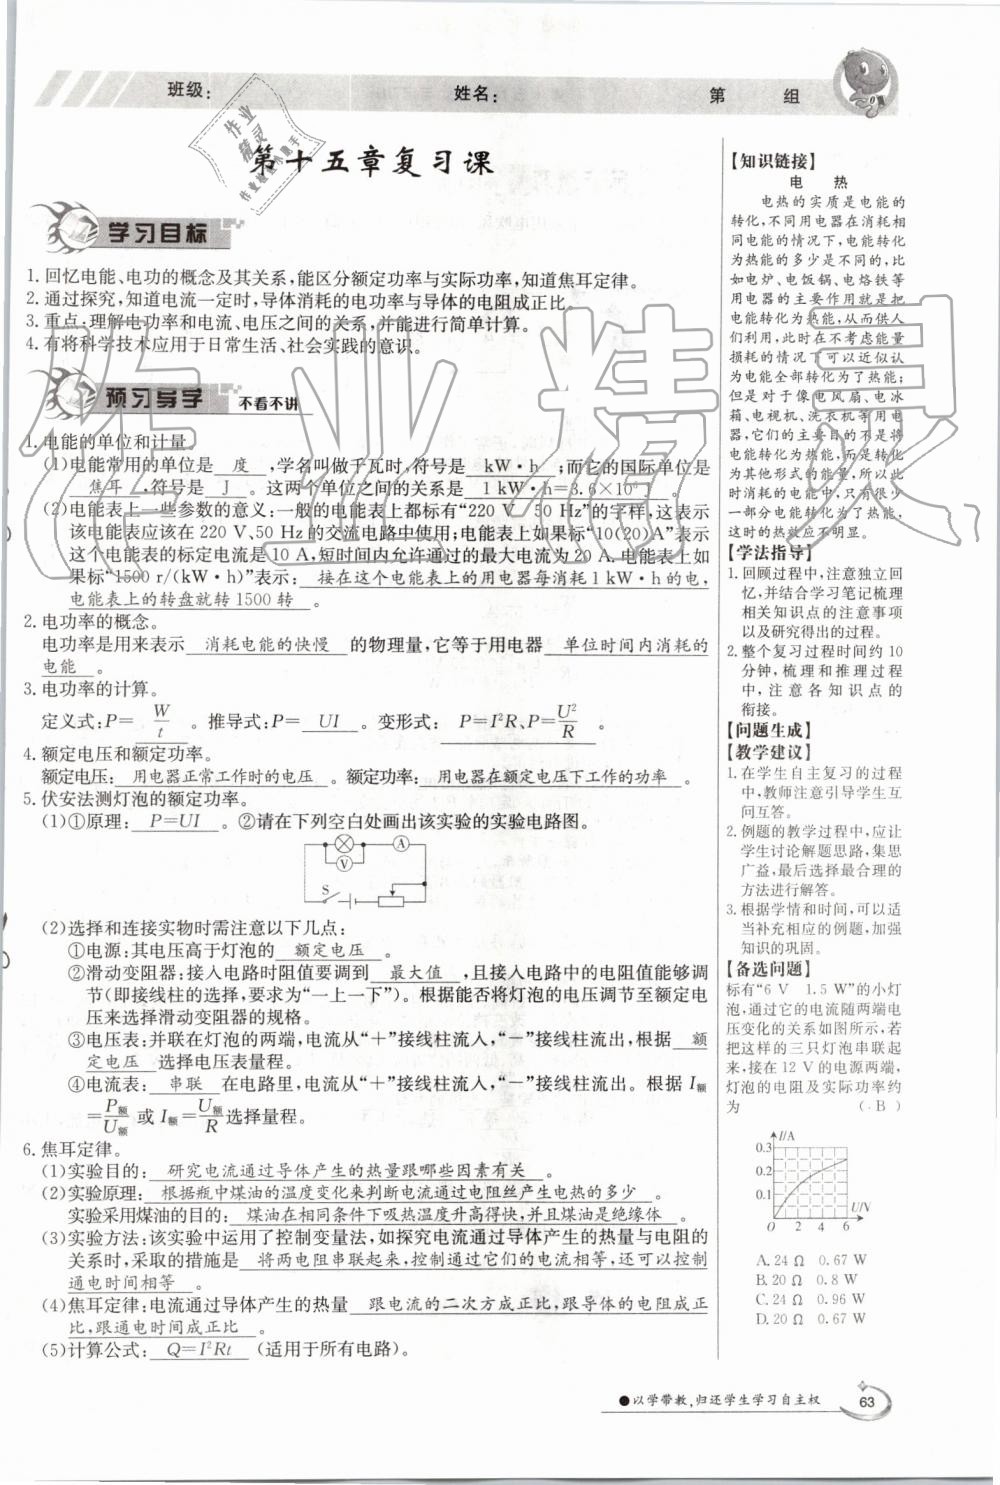 班级：
姓名：
第 组
第十五章复习课
学习目标
1. 回忆电能、电功的概念及其关系,能区分额定功率与实际功率,知道焦耳定律。
2. 通过探究,知道电流一定时,导体消耗的电功率与导体的电阻成正比。
3. 重点:理解电功率和电流、电压之间的关系,并能进行简单计算。
4. 有将科学技术应用于日常生活、社会实践的意识。
预习导学 不看不讲
1. 电能的单位和计量。
(1)电能常用的单位是 度 ,学名叫做千瓦时,符号是 kW·h ;而它的国际单位是
焦耳 ,符号是 J 。这两个单位之间的关系是 1 kW·h=3.6×10⁶ J 。
(2)电能表上一些参数的意义:一般的电能表上都标有“220 V 50 Hz”的字样,这表示
该电能表应该在 220 V、50 Hz 的交流电路中使用;电能表上如果标“10(20)A”表示
这个电能表的标定电流是 10 A,短时间内允许通过的最大电流为 20 A。电能表上如
果标“1500 r/(kW·h)”表示: 接在这个电能表上的用电器每消耗 1 kW·h 的电,
电能表上的转盘就转 1500 转 。
2. 电功率的概念。
电功率是用来表示 消耗电能的快慢 的物理量,它等于用电器 单位时间内消耗的
电能 。
3. 电功率的计算。
定义式:P= W/t 。推导式:P= UI 。变形式: P=I²R、P=U²/R 。
4. 额定电压和额定功率。
额定电压: 用电器正常工作时的电压 。额定功率: 用电器在额定电压下工作的功率 。
5. 伏安法测灯泡的额定功率。
(1)①原理: P=UI 。②请在下列空白处画出该实验的实验电路图。
A
V
S
(2)选择和连接实物时需注意以下几点:
①电源:其电压高于灯泡的 额定电压 。
②滑动变阻器:接入电路时阻值要调到 最大值 ,且接入电路中的电阻值能够调
节(即接线柱的选择,要求为“一上一下”)。根据能否将灯泡的电压调节至额定电
压来选择滑动变阻器的规格。
③电压表:并联在灯泡的两端,电流从“+”接线柱流入,“-”接线柱流出。根据 额
定电压 选择电压表量程。
④电流表: 串联 在电路里,电流从“+”接线柱流入,“-”接线柱流出。根据 I额
=P额/U额 或 I额=U额/R 选择量程。
6. 焦耳定律。
(1)实验目的: 研究电流通过导体产生的热量跟哪些因素有关 。
(2)实验原理: 根据瓶中煤油的温度变化来判断电流通过电阻丝产生电热的多少 。
实验采用煤油的目的: 煤油在相同条件下吸热温度升高得快,并且煤油是绝缘体 。
(3)实验方法:该实验中运用了控制变量法,如探究电流通过导体产生的热量与电阻的
关系时,采取的措施是 将两电阻串联起来,控制通过它们的电流相等,还可以控制
通电时间相等 。
(4)焦耳定律:电流通过导体产生的热量 跟电流的二次方成正比,跟导体的电阻成正
比,跟通电时间成正比 。
(5)计算公式: Q=I²Rt (适用于所有电路)。
【知识链接】
电 热
电热的实质是电能的
转化,不同用电器在消耗相
同电能的情况下,电能转化
为热能的多少是不同的,比
如电炉、电饭锅、电烙铁等
用电器的主要作用就是把
电能转化为热能,从而供人
们利用,此时在不考虑能量
损耗的情况下可以近似认
为电能全部转化为了热能;
但是对于像电风扇、电冰
箱、电视机、洗衣机等用电
器,它们的主要目的不是将
电能转化为热能,而是转化
为其他形式的能量,所以此
时消耗的电能中,只有很少
一部分电能转化为了热能,
这时的热效应不明显。
【学法指导】
1. 回顾过程中,注意独立回
忆,并结合学习笔记梳理
相关知识点的注意事项
以及研究得出的过程。
2. 整个复习过程时间约 10
分钟,梳理和推理过程
中,注意各知识点的
衔接。
【问题生成】
【教学建议】
1. 在学生自主复习的过程
中,教师注意引导学生互
问互答。
2. 例题的教学过程中,应让
学生讨论解题思路,集思
广益,最后选择最合理的
方法进行解答。
3. 根据学情和时间,可以适
当补充相应的例题,加强
知识的巩固。
【备选问题】
标有“6 V 1.5 W”的小灯
泡,通过它的电流随两端电
压变化的关系如图所示,若
把这样的三只灯泡串联起
来,接在 12 V 的电源两端,
灯泡的电阻及实际功率约
为 ( B )
I/A
0.3
0.2
0.1
U/V
0 2 4 6
A. 24 Ω 0.67 W
B. 20 Ω 0.8 W
C. 24 Ω 0.96 W
D. 20 Ω 0.67 W
●以学带教,归还学生学习自主权
63
作业精灵